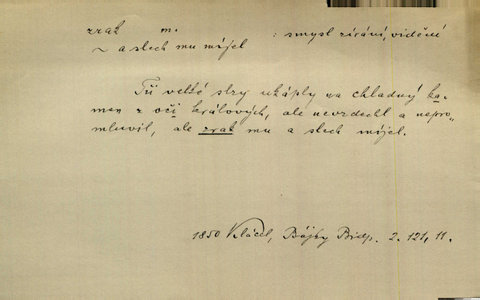 zrak m. : smysl zírání, vidění
~ a slech mu míjel
Tři velké slzy ukáply na chladný ka-
men z očí králových, ale nevzdechl a nepro-
mluvil, ale zrak mu a slech míjel.
1850 Klácel, Bájky Bidp. 2. 121, 11.